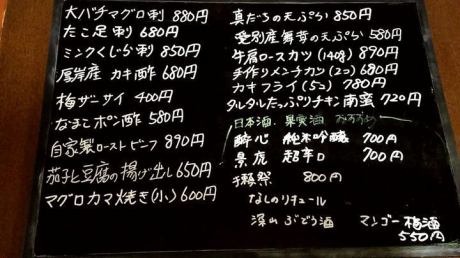 大バチマグロ刺 880円
たこ足刺 680円
ミンクくじら刺 850円
厚岸産 カキ酢 680円
梅ザーサイ 400円
なまこポン酢 580円
自家製ローストビーフ 890円
茄子と豆腐の揚げ出し 650円
マグロカマ焼き(小) 600円
真だちの天ぷら 850円
愛別産 舞茸の天ぷら 580円
牛肩ロースカツ(140g) 890円
手作りメンチカツ(2コ) 680円
カキフライ(5コ) 780円
タルタルたっぷりチキン南蛮 720円
日本酒、果実酒 おすすめ
酔心 純米吟醸 700円
景虎 超辛口 700円
獺祭 800円
なしのリキュール
深山ぶどう酒
マンゴー梅酒
550円